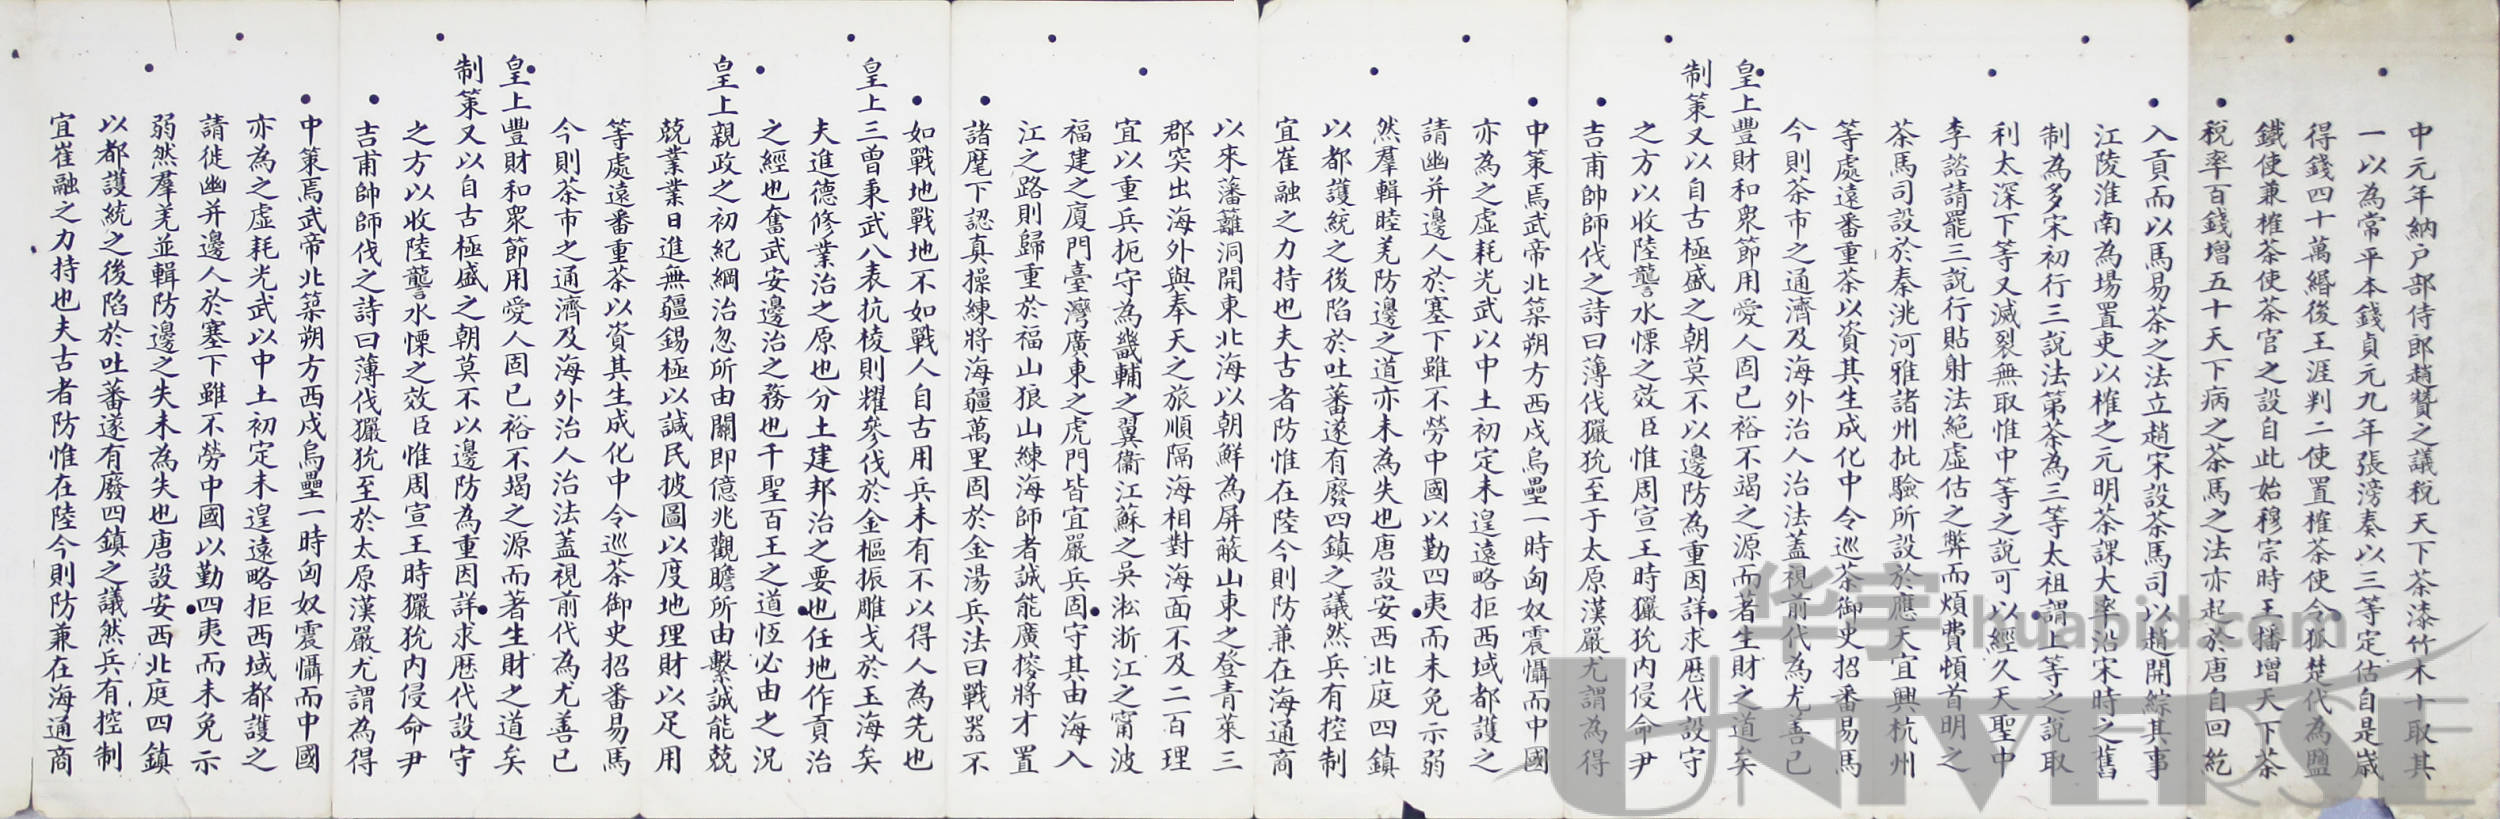 中元年納户部侍郎趙贊之議稅天下茶漆竹木十取其
一以為常平本錢貞元九年張滂奏以三等定估自是歲
得錢四十萬緡後王涯判二使置榷茶使令狐楚代為鹽
鐵使兼榷茶使茶官之設自此始穆宗時王播增天下茶
稅率百錢增五十天下病之茶馬之法亦起於唐自回紇
入貢而以馬易茶之法立趙宋設茶馬司以趙開綜其事
江陵淮南為場置吏以榷之元明茶課大率沿宋時之舊
制為多宋初行三說法第茶為三等太祖謂上等之說取
利太深下等又滅裂無取惟中等之說可以經久天聖中
李諮請罷三說行貼射法絕虛估之弊而煩費頓首明之
茶馬司設於秦洮河雅諸州批驗所設於應天宜興杭州
等處遠番重茶以資其生成化中令巡茶御史招番易馬
今則茶市之通濟及海外治人治法蓋視前代為尤善已
皇上豐財和眾節用愛人固已裕不竭之源而著生財之道矣
制策又以自古極盛之朝莫不以邊防為重因詳求歷代設守
之方以收陸讋水慄之效臣惟周宣王時玁狁內侵命尹
吉甫帥師伐之詩曰薄伐玁狁至于太原漢嚴尤謂為得
中策焉武帝北築朔方西戍烏壘一時匈奴震懾而中國
亦為之虛耗光武以中土初定未遑遠略拒西域都護之
請幽并邊人於塞下雖不勞中國以勤四夷而未免示弱
然羣輯睦羌防邊之道亦未為失也唐設安西北庭四鎮
以都護統之後陷於吐蕃遂有廢四鎮之議然兵有控制
宜崔融之力持也夫古者防惟在陸今則防兼在海通商
以來藩籬洞開東北海以朝鮮為屏蔽山東之登青萊三
郡突出海外與奉天之旅順隔海相對海面不及二百理
宜以重兵扼守為畿輔之翼衞江蘇之吳淞浙江之甯波
福建之廈門臺灣廣東之虎門皆宜嚴兵固守其由海入
江之路則歸重於福山狼山練海師者誠能廣搜將才置
諸麾下認真操練將海疆萬里固於金湯兵法曰戰器不
如戰地戰地不如戰人自古用兵未有不以得人為先也
皇上三曾秉武八表抗棱則耀參伐於金樞振雕戈於玉海矣
夫進德修業治之原也分土建邦治之要也任地作貢治
之經也奮武安邊治之務也千聖百王之道恆必由之況
皇上親政之初紀綱治忽所由關即億兆觀瞻所由繫誠能兢
兢業業日進無疆錫極以誠民披圖以度地理財以足用
等處遠番重茶以資其生成化中令巡茶御史招番易馬
今則茶市之通濟及海外治人治法蓋視前代為尤善已
皇上豐財和眾節用愛人固已裕不竭之源而著生財之道矣
制策又以自古極盛之朝莫不以邊防為重因詳求歷代設守
之方以收陸讋水慄之效臣惟周宣王時玁狁內侵命尹
吉甫帥師伐之詩曰薄伐玁狁至於太原漢嚴尤謂為得
中策焉武帝北築朔方西戍烏壘一時匈奴震懾而中國
亦為之虛耗光武以中土初定未遑遠略拒西域都護之
請徙幽并邊人於塞下雖不勞中國以勤四夷而未免示
弱然羣羌並輯防邊之失未為失也唐設安西北庭四鎮
以都護統之後陷於吐蕃遂有廢四鎮之議然兵有控制
宜崔融之力持也夫古者防惟在陸今則防兼在海通商
华宇 huabid.com
UNIVERSE